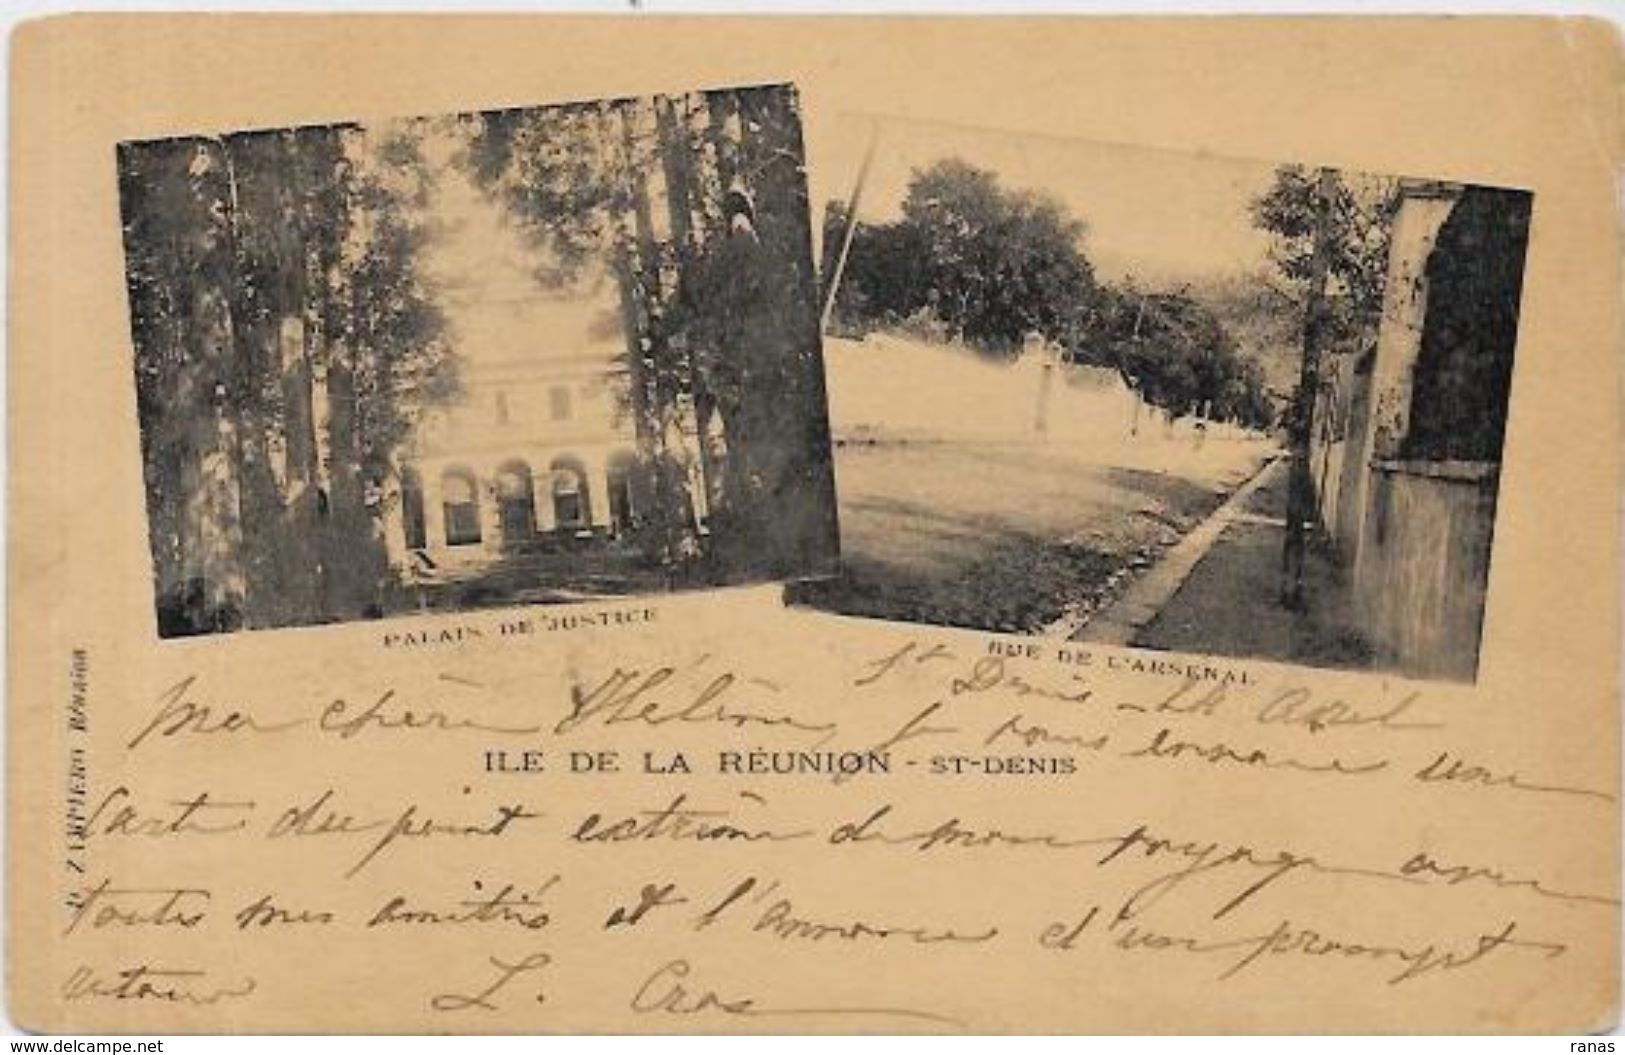 PALAIS DE JUSTICE
RUE DE L'ARSENAL
St Denis - 24 Avril
Ma chère Hélène, je vous envoie une
ILE DE LA RÉUNION - ST-DENIS
carte du point extrême de mon voyage avec
toutes mes amitiés et l'annonce d'un prompt
retour L. Cros
D. ZAMPIERO Réunion
www.delcampe.net
ranas